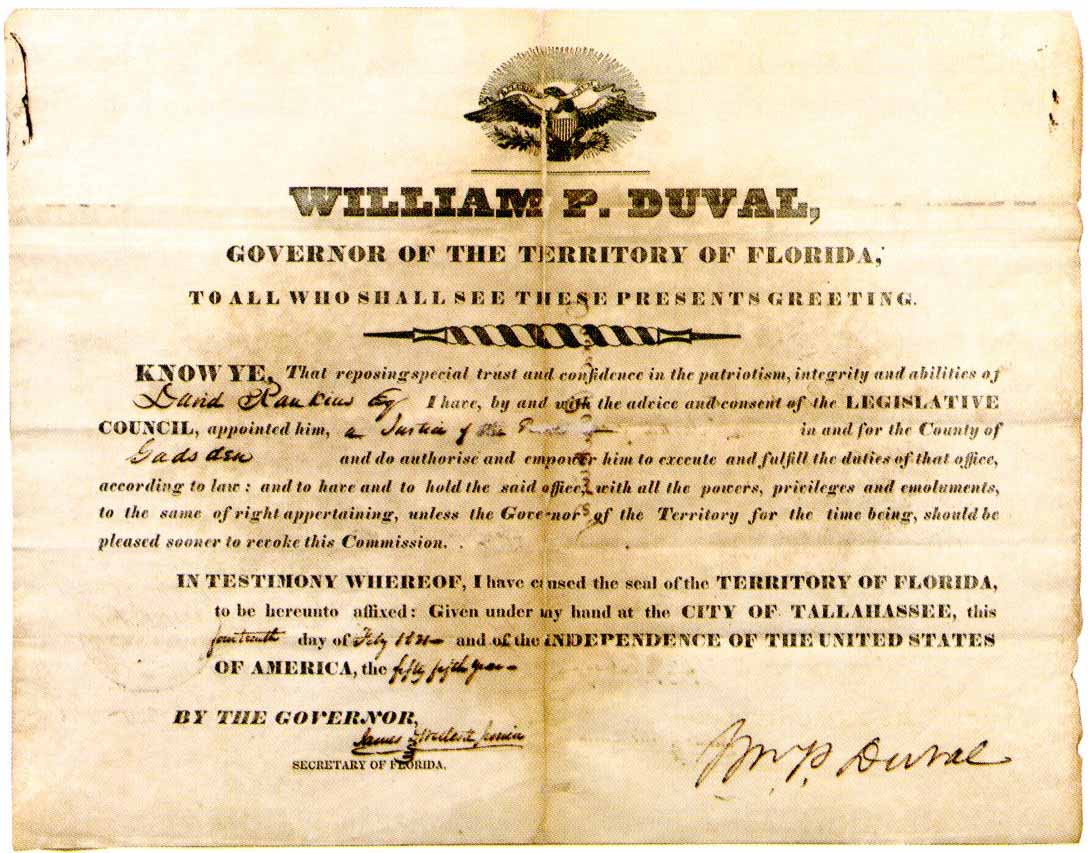 WILLIAM P. DUVAL,
GOVERNOR OF THE TERRITORY OF FLORIDA,
TO ALL WHO SHALL SEE THESE PRESENTS GREETING.
KNOW YE, That reposing special trust and confidence in the patriotism, integrity and abilities of
David Rankins Esq I have, by and with the advice and consent of the LEGISLATIVE
COUNCIL, appointed him, a Justice of the in and for the County of
Gadsden and do authorise and empower him to execute and fulfill the duties of that office,
according to law: and to have and to hold the said office, with all the powers, privileges and emoluments,
to the same of right appertaining, unless the Governor of the Territory for the time being, should be
pleased sooner to revoke this Commission.
IN TESTIMONY WHEREOF, I have caused the seal of the TERRITORY OF FLORIDA,
to be hereunto affixed: Given under my hand at the CITY OF TALLAHASSEE, this
fourteenth day of Feby and of the INDEPENDENCE OF THE UNITED STATES
OF AMERICA, the fifty fifth year
BY THE GOVERNOR,
James Westcott junior
SECRETARY OF FLORIDA.
Wm P. Duval